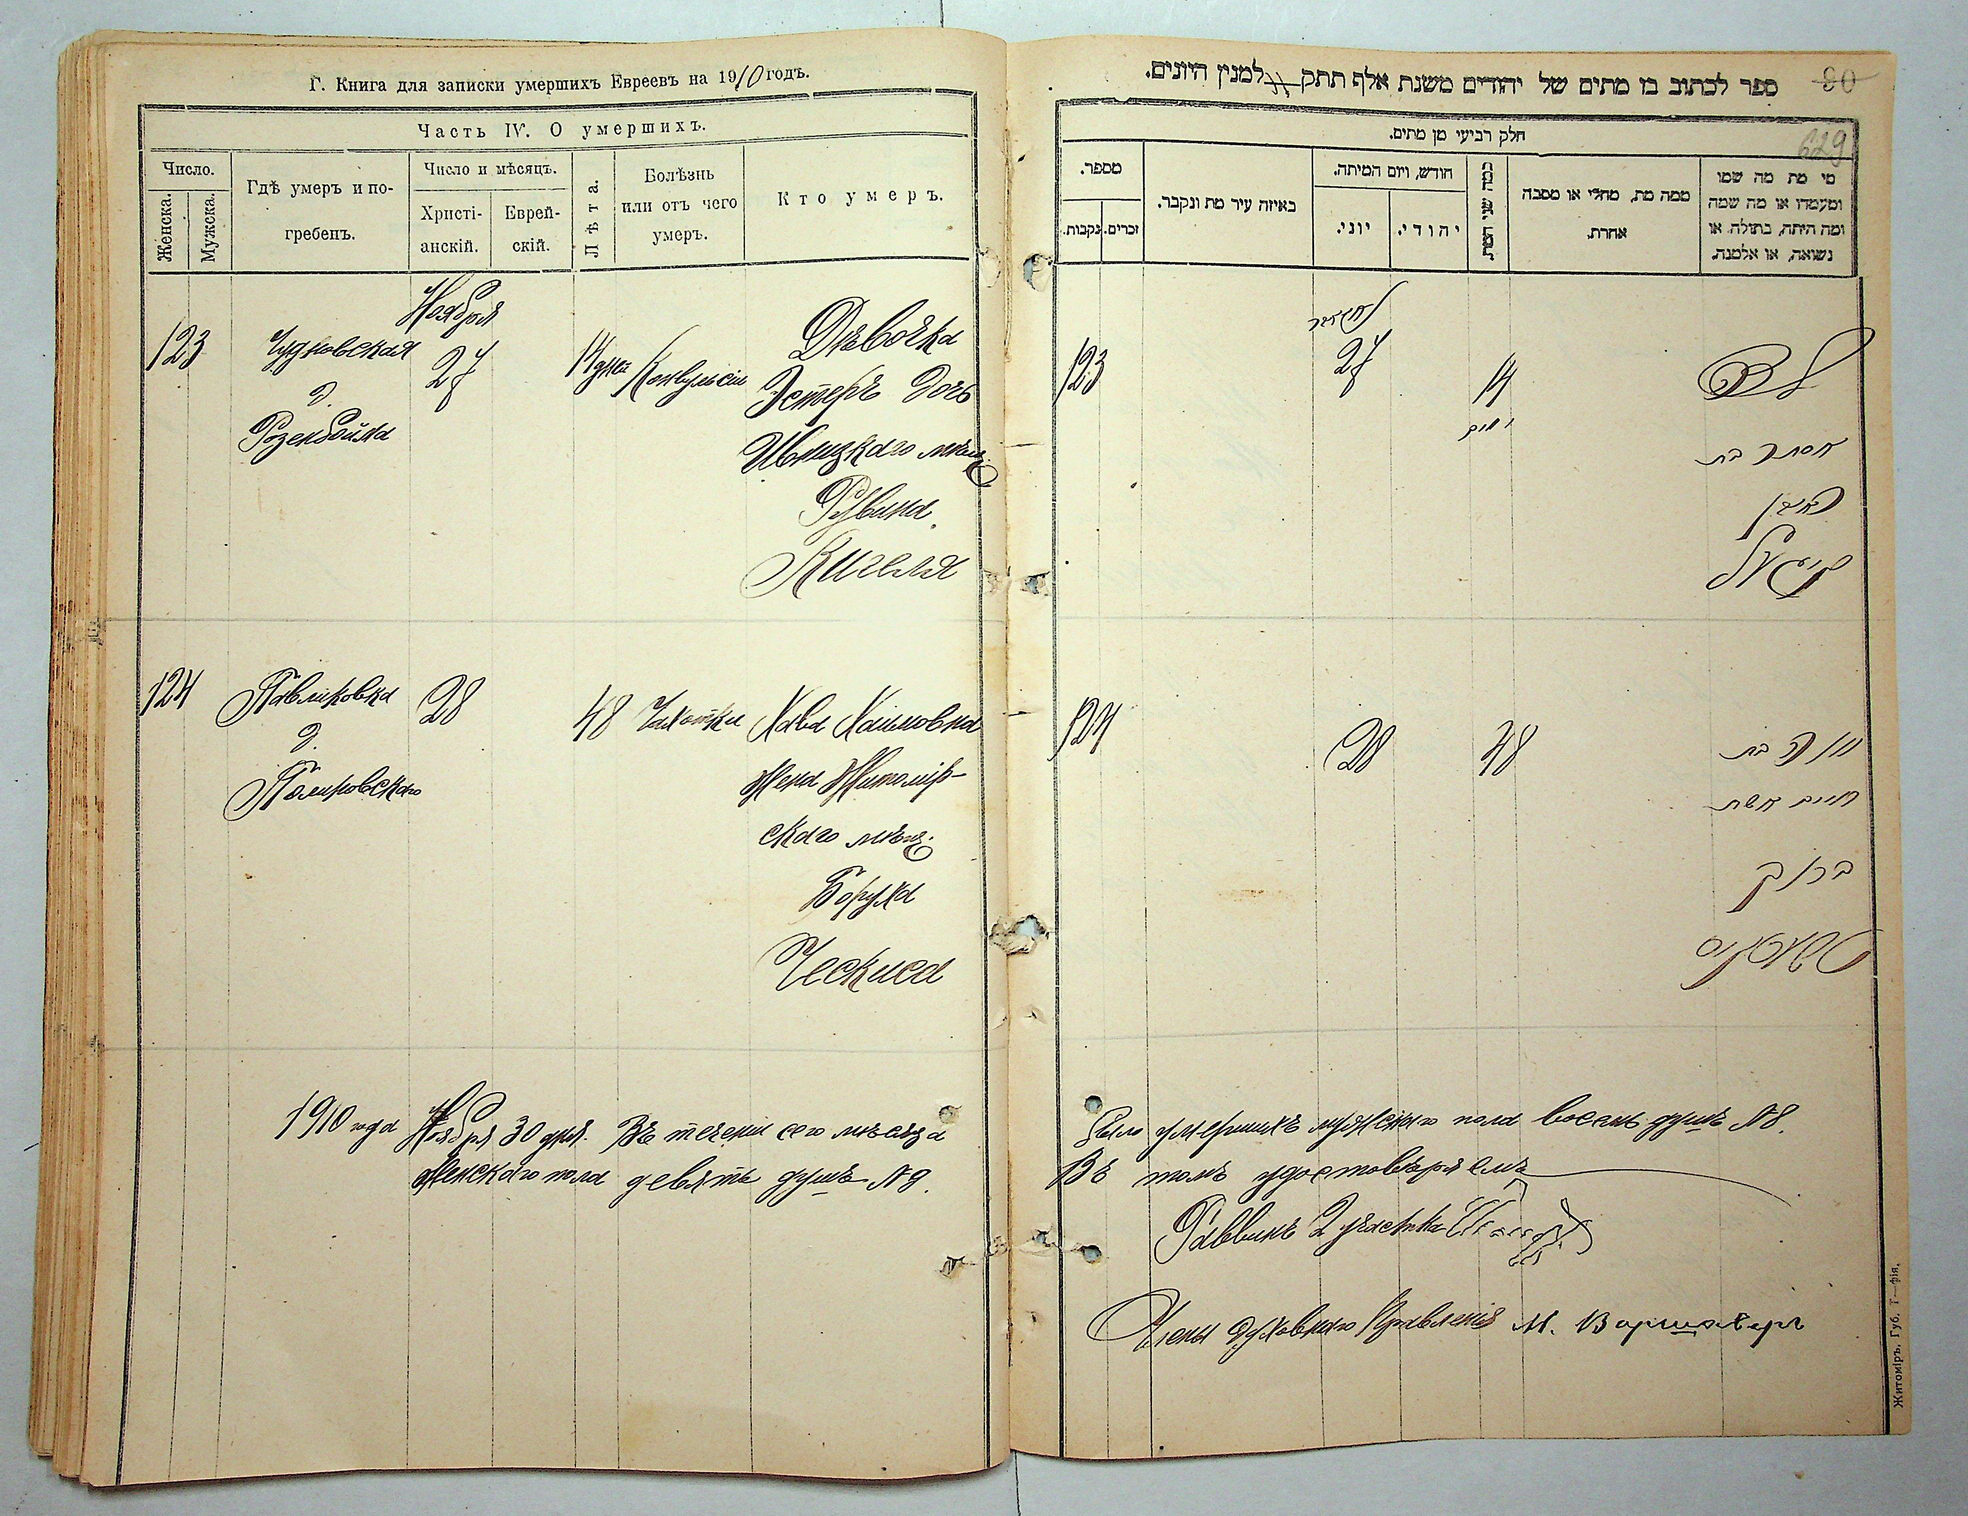 Г. Книга для записки умершихъ Евреевъ на 1910 годъ.
Часть IV. О умершихъ.
Число.
Женска.
Мужска.
Гдѣ умеръ и по-
гребенъ.
Число и мѣсяцъ.
Христі-
анскій.
Еврей-
скій.
Лѣта.
Болѣзнь
или отъ чего
умеръ.
Кто умеръ.
Ноября
123 Чудновская 27 14 дней Конвульсіи Дѣвочка
д. Эстеръ дочь
Розенбойма Ивницкаго мѣщ.
Рувина
Кигеля
124 Павликовка 28 48 Чахотки Хава Хаимовна
д. жена Житомір-
скаго мѣщ.
Боруха
Ческиса
1910 года Ноября 30 дня. Въ теченіи сего мѣсяца
женского пола девять душъ №9.
ספר לכתוב בו מתים של יהודים משנת אלף תתק למנין היונים.
80
629
חלק רביעי מן מתים.
מספר.
נקבות.
זכרים.
באיזה עיר מת ונקבר.
חודש, ויום המיתה.
יוני.
יהודי.
כמה שני המת
ממה מת, מחלי או מסבה
אחרת.
מי מת מה שמו
ומעמדו או מה שמה
ומה היתה, בתולה או
נשואה, או אלמנה.
123 27 14
ימים
אסתר בת
ראובן
קיגעל
124 28 48 חוה בת
חיים אשת
ברוך
טשעסקיס
было умершихъ мужского пола восемь душъ №8.
Въ томъ удостовѣряемъ
Раввинъ 2 участка
Члены духовнаго Правленія М. Варшаверъ
Житоміръ. Губ. Т—фія.